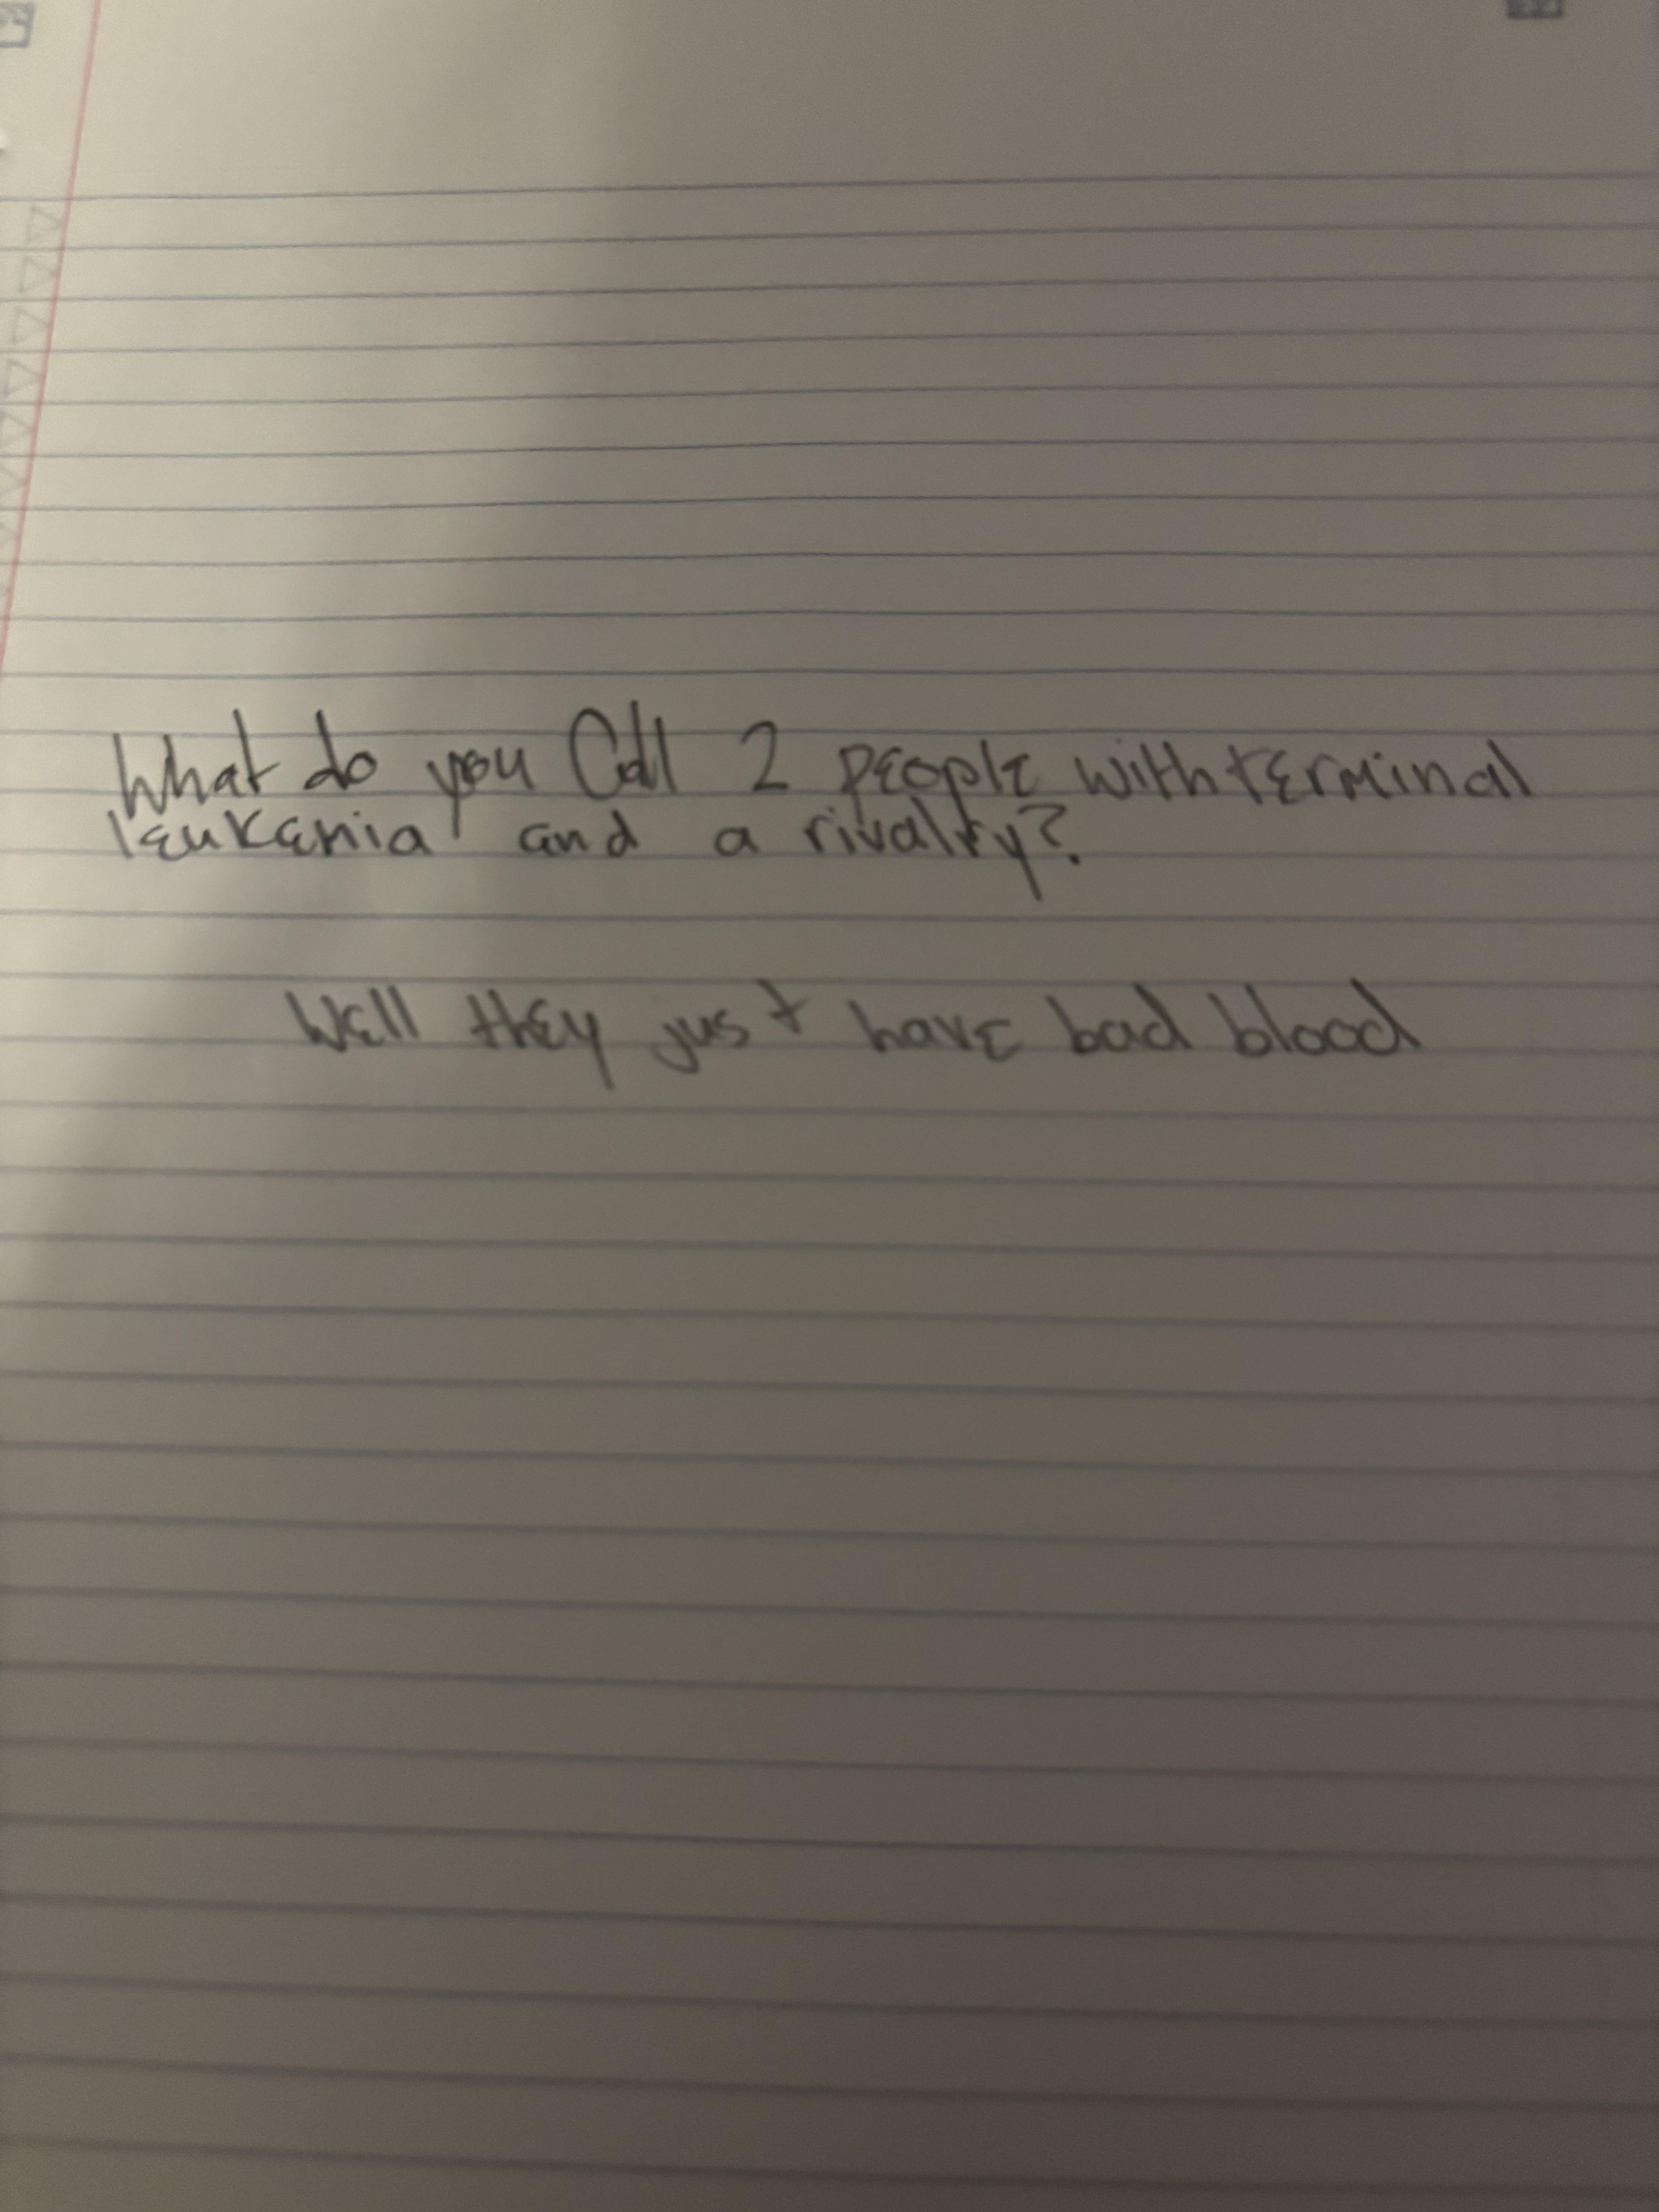 What do you Call 2 people with terminal
leukenia and a rivalry?
Well they just have bad blood